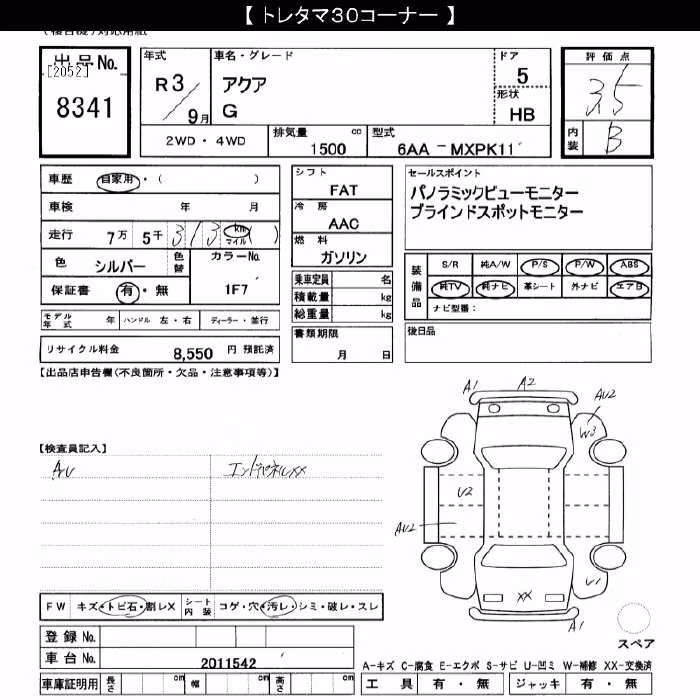 【 トレタマ30コーナー 】
出品No.
[2052]
8341
年式
R3/9月
車名・グレード
アクア
G
ドア
5
形状
HB
評価点
3.5
内装
B
2WD・4WD
排気量 cc
1500
型式
6AA-MXPK11
車歴 自家用・( )
車検 年 月
走行 7万 5千 313 km マイル ( )
色 シルバー 色替
カラーNo.
1F7
保証書 有・無
モデル年式 年 ハンドル 左・右 ディーラー・並行
リサイクル料金 8,550 円 預託済
シフト
FAT
冷房
AAC
燃料
ガソリン
乗車定員 名
積載量 kg
総重量 kg
書類期限
月 日
セールスポイント
パノラミックビューモニター
ブラインドスポットモニター
装備品
S/R 純A/W P/S P/W ABS
純TV 純ナビ 革シート 外ナビ エアB
ナビ型番:
後日品
【出品店申告欄(不良箇所・欠品・注意事項等)】
【検査員記入】
AU エンドパネルXX
A1 A2 AU2
W3
U2
AU2
U1
XX
A1
スペア
FW キズ・トビ石・割レX シート内装 コゲ・穴・汚レ・シミ・破レ・スレ
登録No.
車台No. 2011542
車庫証明用 長さ cm 幅 cm 高さ cm
A-キズ C-腐食 E-エクボ S-サビ U-凹ミ W-補修 XX-交換済
工具 有・無 ジャッキ 有・無